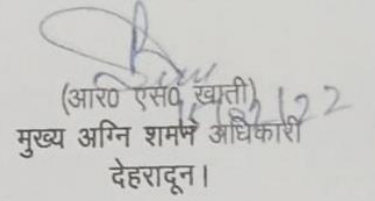 (आर० एस० खाती)
मुख्य अग्नि शमन अधिकारी
देहरादून।